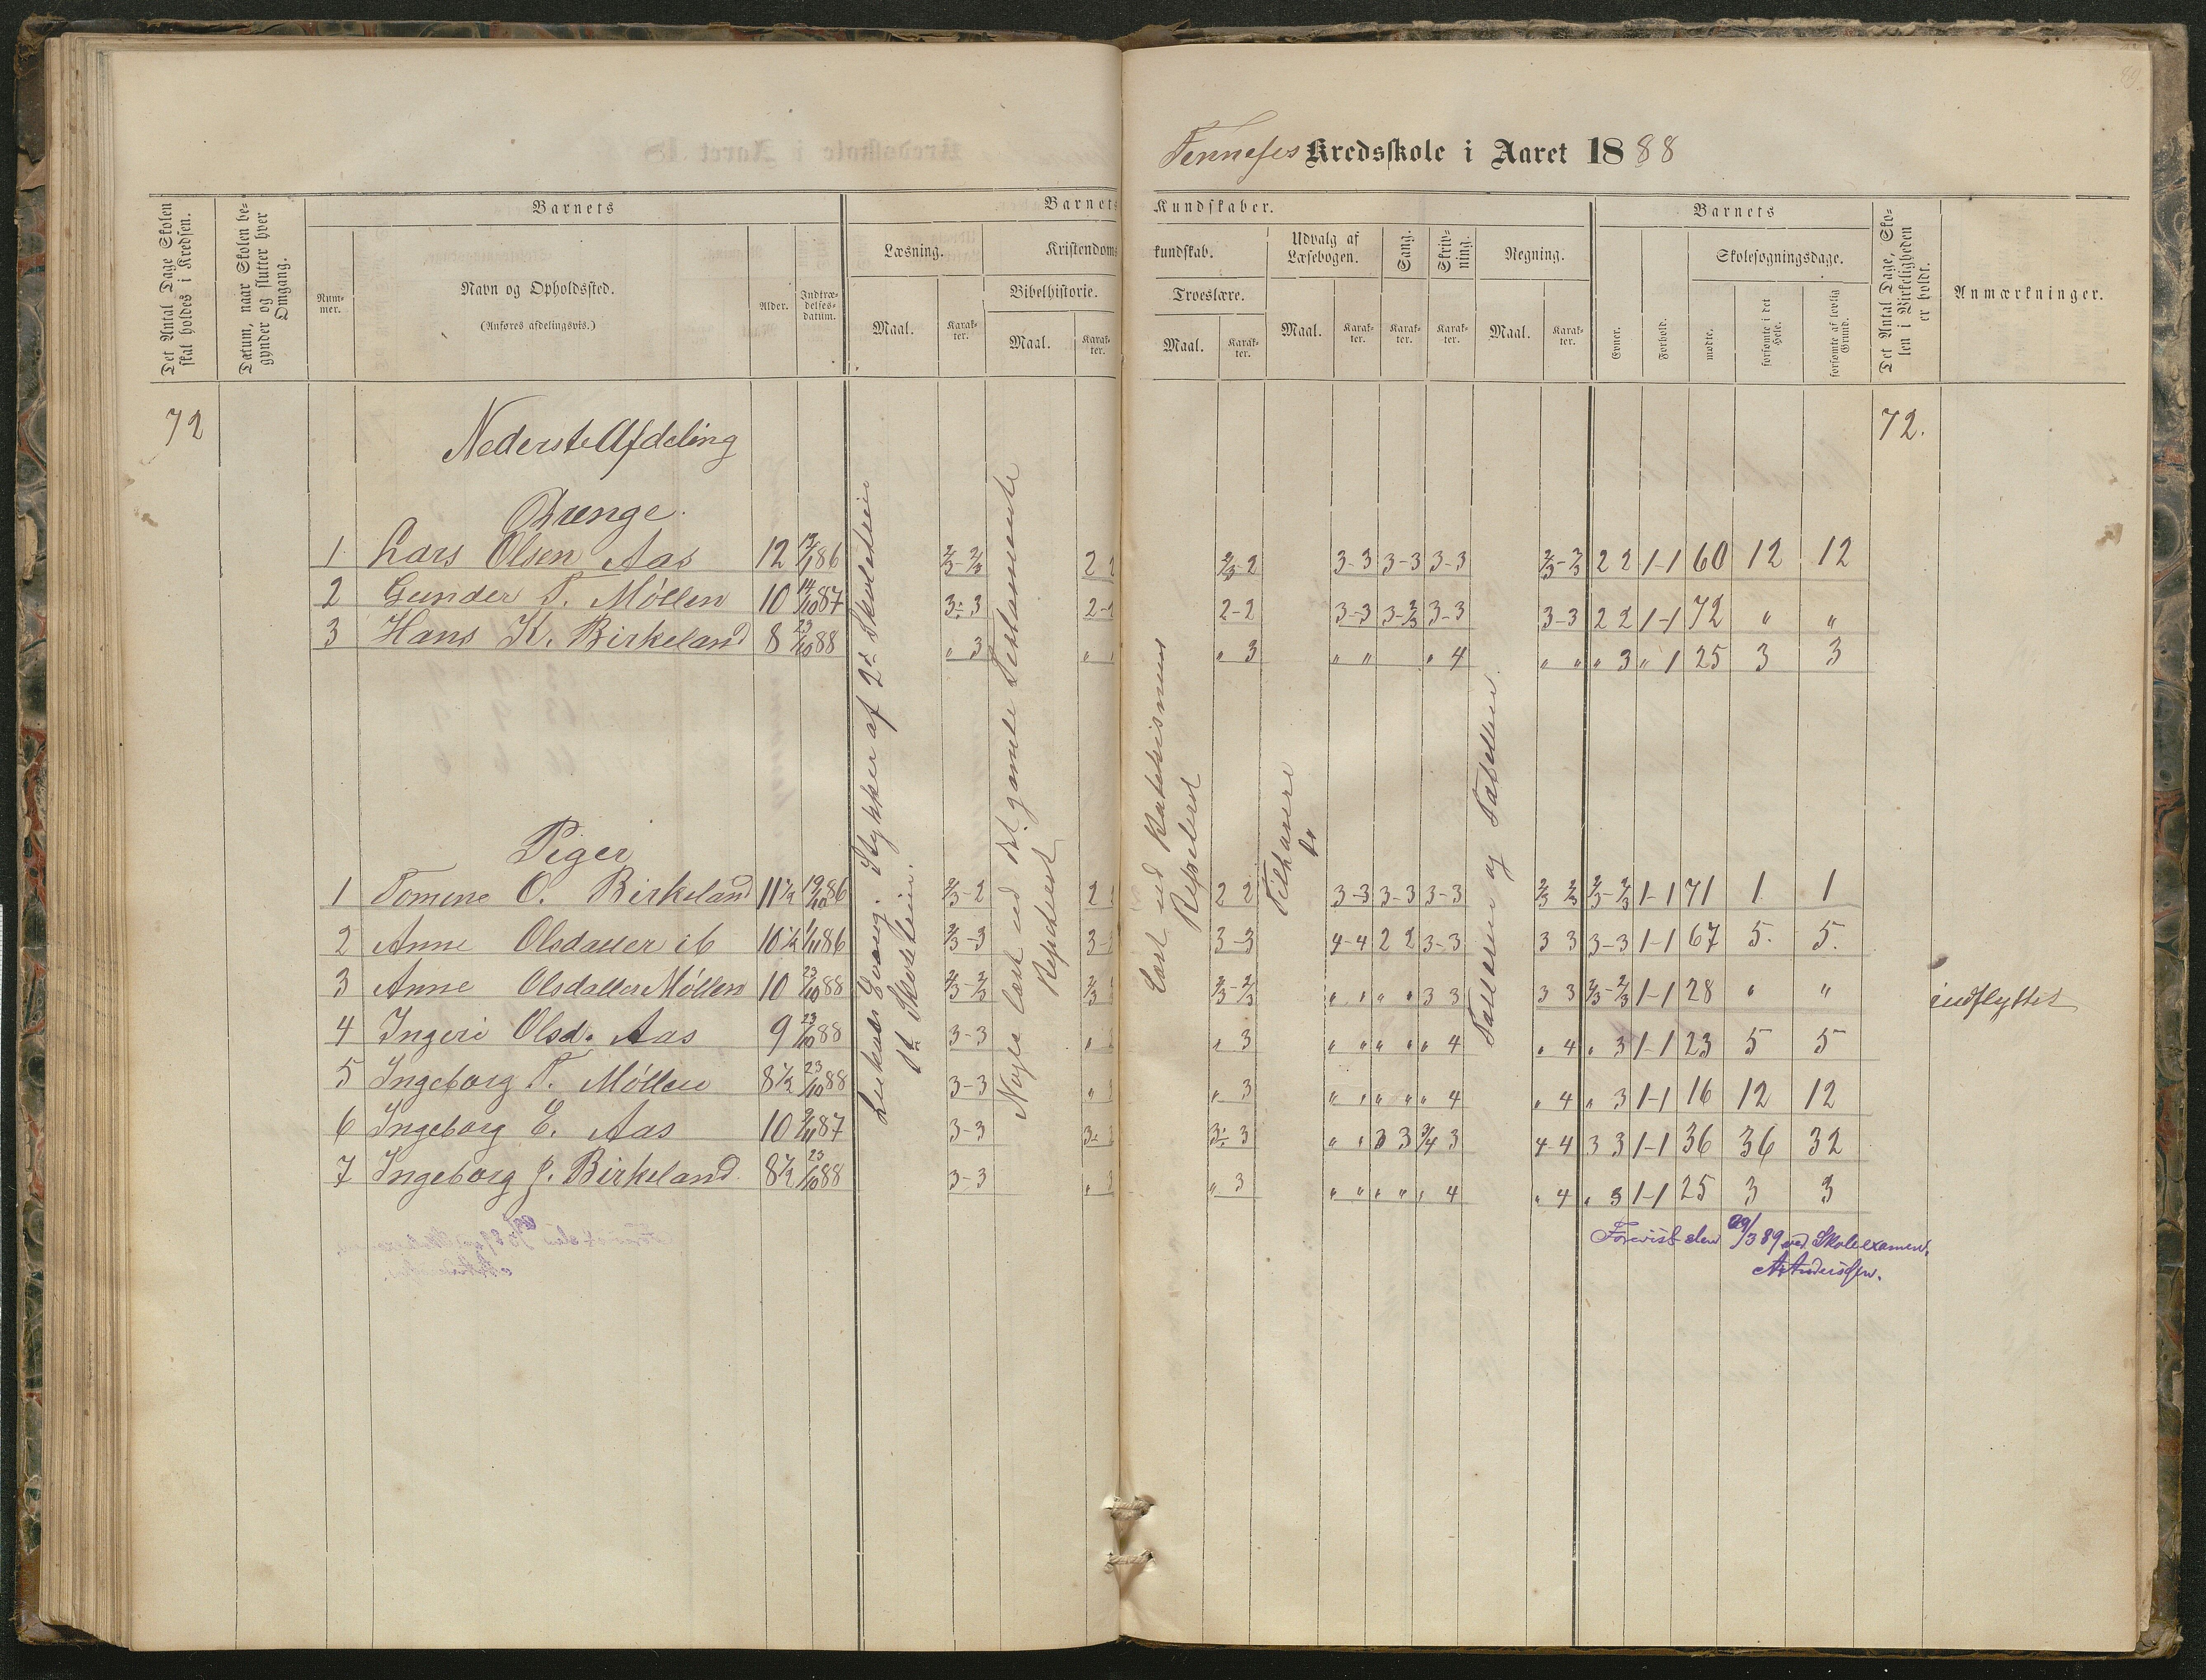 89
Kredsskole i Aaret 1888
Det Antal Dage Skolen skal holdes i Kredsen.
Datum, naar Skolen begynder og slutter hver Omgang.
Barnets
Num-mer.
Navn og Opholdssted.
(Anføres afdelingsvis.)
Alder.
Indtræ-delses-datum.
Barnets Kundskaber.
Læsning.
Maal.
Karak-ter.
Kristendoms kundskab.
Bibelhistorie.
Maal.
Karak-ter.
Troeslære.
Maal.
Karak-ter.
Udvalg af Læsebogen.
Maal.
Karak-ter.
Sang.
Karak-ter.
Skriv-ning.
Karak-ter.
Regning.
Maal.
Karak-ter.
Barnets
Evner.
Forhold.
Skolesøgningsdage.
mødte.
forsømte i det Hele.
forsømte af lovlig Grund.
Det Antal Dage, Sko-len i Virkeligheden er holdt.
Anmærkninger.
72 Nederste Afdeling 72.
Drenge.
1 Lars Olsen Aas 12 12/1 86 2/3-2/3 2 2 2/3-2 3-3 3-3 3-3 2/3-2/3 2 2 1-1 60 12 12
2 Gunder T. Møllen 10 14/10 87 3-3 2- 2-2 3-3 3-2/3 3-3 3-3 2 2 1-1 72 " "
3 Hans K. Birkeland 8 23/10 88 " 3 " " 3 " " " 4 " " " 3 " 1 25 3 3
Piger
1 Tomine O. Birkeland 11 1/2 19/10 86 2/3-2 2 2 2 3-3 3-3 3-3 2/3 2/3 2/3-2/3 1-1 71 1 1
2 Anne Olsdatter ib 10 1/2 1/11 86 2/3-3 3- 3-3 4-4 2 2 3-3 3 3 3-3 1-1 67 5. 5.
3 Anne Olsdatter Møllen 10 23/10 88 2/3-2/3 2/3 2/3-2/3 " " " " 3 3 3 3 2/3-2/3 1-1 28 " " indflyttet
4 Ingeri Olsd. Aas 9 23/10 88 3-3 " " 3 " " " " " 4 " 4 " 3 1-1 23 5 5
5 Ingeborg T. Møllen 8 1/2 23/10 88 3-3 " " 3 " " " " " 4 " 4 " 3 1-1 16 12 12
6 Ingeborg E. Aas 10 2/11 87 3-3 3- 3- 3 " " 3 3 3/4 3 4-4 3 3 1-1 36 36 32
7 Ingeborg J. Birkeland 8 1/2 23/10 88 3-3 " " 3 " " " " " 4 " 4 " 3 1-1 25 3 3
Stykker af 2d
Nogle læst ud det gamle Testamente
Repeteret
Læst ud Katekismus
Repeteret
Tilhørere
Tallære og Tabellen.
Forevist den 29/3 89 ved Skoleexamen.
A. Andersen.